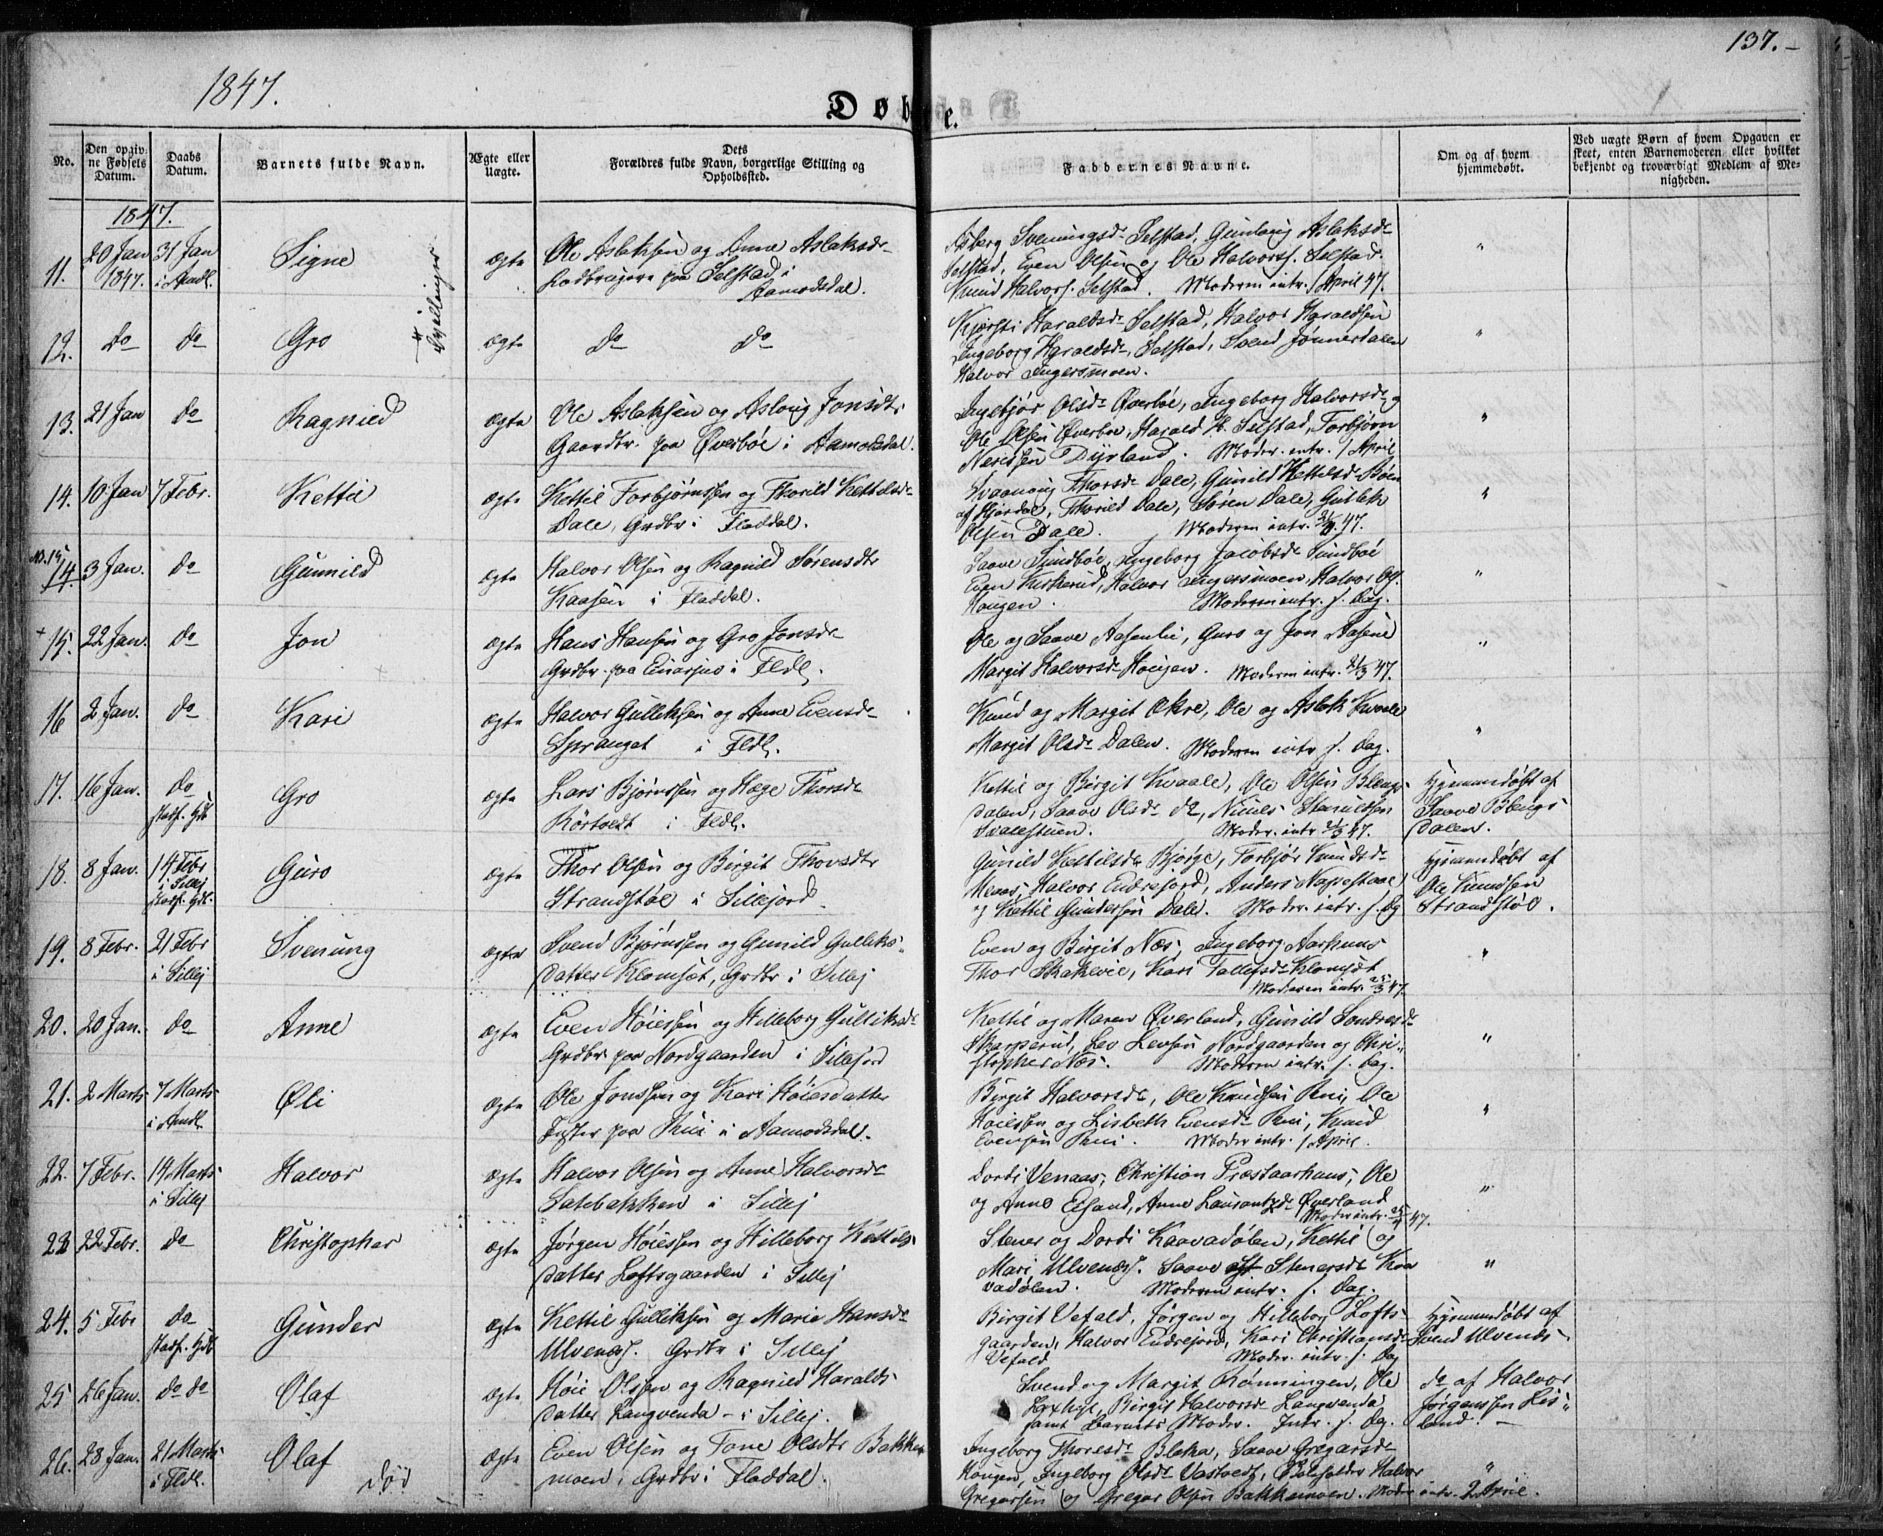 1847.
137.
Døbte.
No.
Den opgivne Fødsels Datum.
Daabs Datum.
Barnets fulde Navn.
Ægte eller Uægte.
Dets Forældres fulde Navn, borgerlige Stilling og Opholdssted.
Faddernes Navne.
Om og af hvem hjemmedøbt.
Ved uægte Børn af hvem Opgaven er skeet, enten Barnemoderen eller hvilket bekjendt og troværdigt Medlem af Menigheden.
1847.
11. 20 Jan 1847. 31 Jan i Amdl. Signe Tvillinger ægte
Ole Aslaksen og Anne Aslaksdr
paa Selstad i
Aamodsdal.
Asberg Sveinungsdr Selstad, Gunlaug Aslaksdr
Selstad, Even Olsen og Ole Halvors. Selstad.
Knud Halvors. Selstad. Moderen intr. 1 April 47.
12. do do Gro ægte do do
Kjersti Haraldsdr Selstad, Halvor Haraldsen
Ingeborg Haraldsdr Selstad, Svend Jønnerdalen
Halvor Ingersmoen.
13. 21 Jan do Ragnild ægte
Ole Aslaksen og Aslaug Jonsdtr
Gaardbr. paa Øverbøe i Aamodsdal.
Ingebjør Olsdr Øverbøe, Ingeborg Halvorsdr og
Ole Olsen Øverbøe, Harald H. Selstad, Torbjørn
Nerissen Dyrland. Moder. intr. 1 April
14. 10 Jan 7 Febr. Kettil ægte
Kettil Torbjørnsen og Thorild Kettelsdr
Dale, Grdbr i Fladdal.
Thorsdr Dale, Gunild Kettelsdr Bøen
af Hjerdal, Thorild Dale, Søren Dale, Gullek
Olsen Dale. Moderen intr. 47.
No. 15 14. 3 Jan. do Gunnild ægte
Halvor Olsen og Ragnild Sørensdtr
Kaasen i Fladdal.
Saave Sundbøe, Ingeborg Jacobsdr Sundbøe
Even Kirkerud, Halvor Ingersmoen, Halvor Ols.
Hougen. Moderen intr. s. Dag.
+ 15. 22 Jan. do Jon ægte
Hans Hansen og Gro Jonsdr
Grdbr. paa Einarsjus i Fldl.
Ole og Saave Aasenlie, Guro og Jon Aasene
Margit Halvorsdr Hougen. Moderen intr. 21/3 47.
16 2 Jan. do Kari ægte
Halvor Gulliksen og Anne Evensdr
Spranget i Fldl.
Knud og Margit Økre, Ole og Aslak Kvaale
Margit Olsdr Dalen. Moderen intr s. Dag.
17. 16 Jan. do Gro ægte
Lars Bjørnssen og Hæge Thorsdr
Rørtvedt i Fldl.
Kettil og Birgit Kvaale, Ole Olsen Blengsdalen,
Saave Olsdr do, Stenulssen
Moder. intr 21/3 47.
Hjemmedøbt af
Saave Blengsdalen.
18. 8 Jan. 14 Febr i Sillej Guro ægte
Thor Olsen og Birgit Thovsdtr
Strandstøl i Sillejord.
Gunild Kettilsdr Bjørge, Torbjør Knudsdr
Halvor Endrejord, Anders Napestaae
og Kettil Gundersen Dale. Moder. intr. s. Dg
Hjemmedøbt af
Ole Knudsen
Strandstøl.
19. 8 Febr. 21 Febr i Sillej Svenung ægte
Svend Bjørnssen og Gunild Gulliksdatter
Klomset, Grdbr i Sillej
Even og Birgit Næs, Ingeborg Aarhuus
Thor Skakelie, Kari Tallefsdr Klomset
Moderen intr. 25/3 47.
20. 20 Jan. do Anne ægte
Even Høiessen og Hilleborg Gulliksdr
Grdbr paa Nordgaarden i Sillejord
Kettil og Maren Øverland, Gunild Sondresdr
Skarperud, Lev Levsen Nordgaarden og Christopher
Næs. Moderen intr. s. Dag.
21. 2 Marts 7 Marts i Amdl. Øli ægte
Ole Jonssen og Kari Høiesdatter
paa Rui i Aamodsdal.
Birgit Halvorsdr, Ole Knudsen Rui, Ole
Høiessen og Lisbeth Evensdr Rui, Knud
Evensen Rui. Moder intr. 1 April.
22. 7 Febr. 14 Marts i Sillej Halvor ægte
Halvor Olsen og Anne Halvorsdr
i Sillej
Dordi Venaas, Christian Præstaarhuus, Ole
og Anne Eisand, Anne Laurantzdr Øverland
Moder intr. 47.
23 22 Febr. do Christopher ægte
Jørgen Høiessen og Hilleborg Kettilsdatter
Loftsgaarden i Sillej
Stener og Dordi Kaavadølen, Kettil og
Mari Ulvenæs. Saave Stenersdr Kaavadølen.
Moderen intr. s. Dag.
24. 5 Febr do Gunder ægte
Kettil Gulliksen og Marie Hansdr
Ulvenæs. Grdbr i Sillej
Birgit Vefald, Jørgen og Hilleborg Loftsgaarden,
Halvor Endrejord, Kari Christiansdr
Vefald Moder. intr. s. Dag
Hjemmedøbt af
Svend Ulvenæs.
25 26 Jan. do do Olaf ægte
Høie Olssen og Ragnild Haraldsdatter
Langvenda i Sillej.
Svend og Margit Rønningen, Ole
Birgit Halvorsdr Langvenda
samt Barnets Moder. Intr. s. Dg.
do af Halvor
Jørgenssen Lisland.
26. 28 Jan. 21 Marts i Fldl. Olaf død ægte
Even Olsen og Tone Olsdtr Bakkemoen,
Grdbr i Fladdal.
Ingeborg Thoresdr Bleka, Saave Gregarsdr
Hougen, Ingeborg Olsdr Vastvedt, Halvor
Gregarsen og Gregar Olsen Bakkemoen. Moder intr. 2 April.